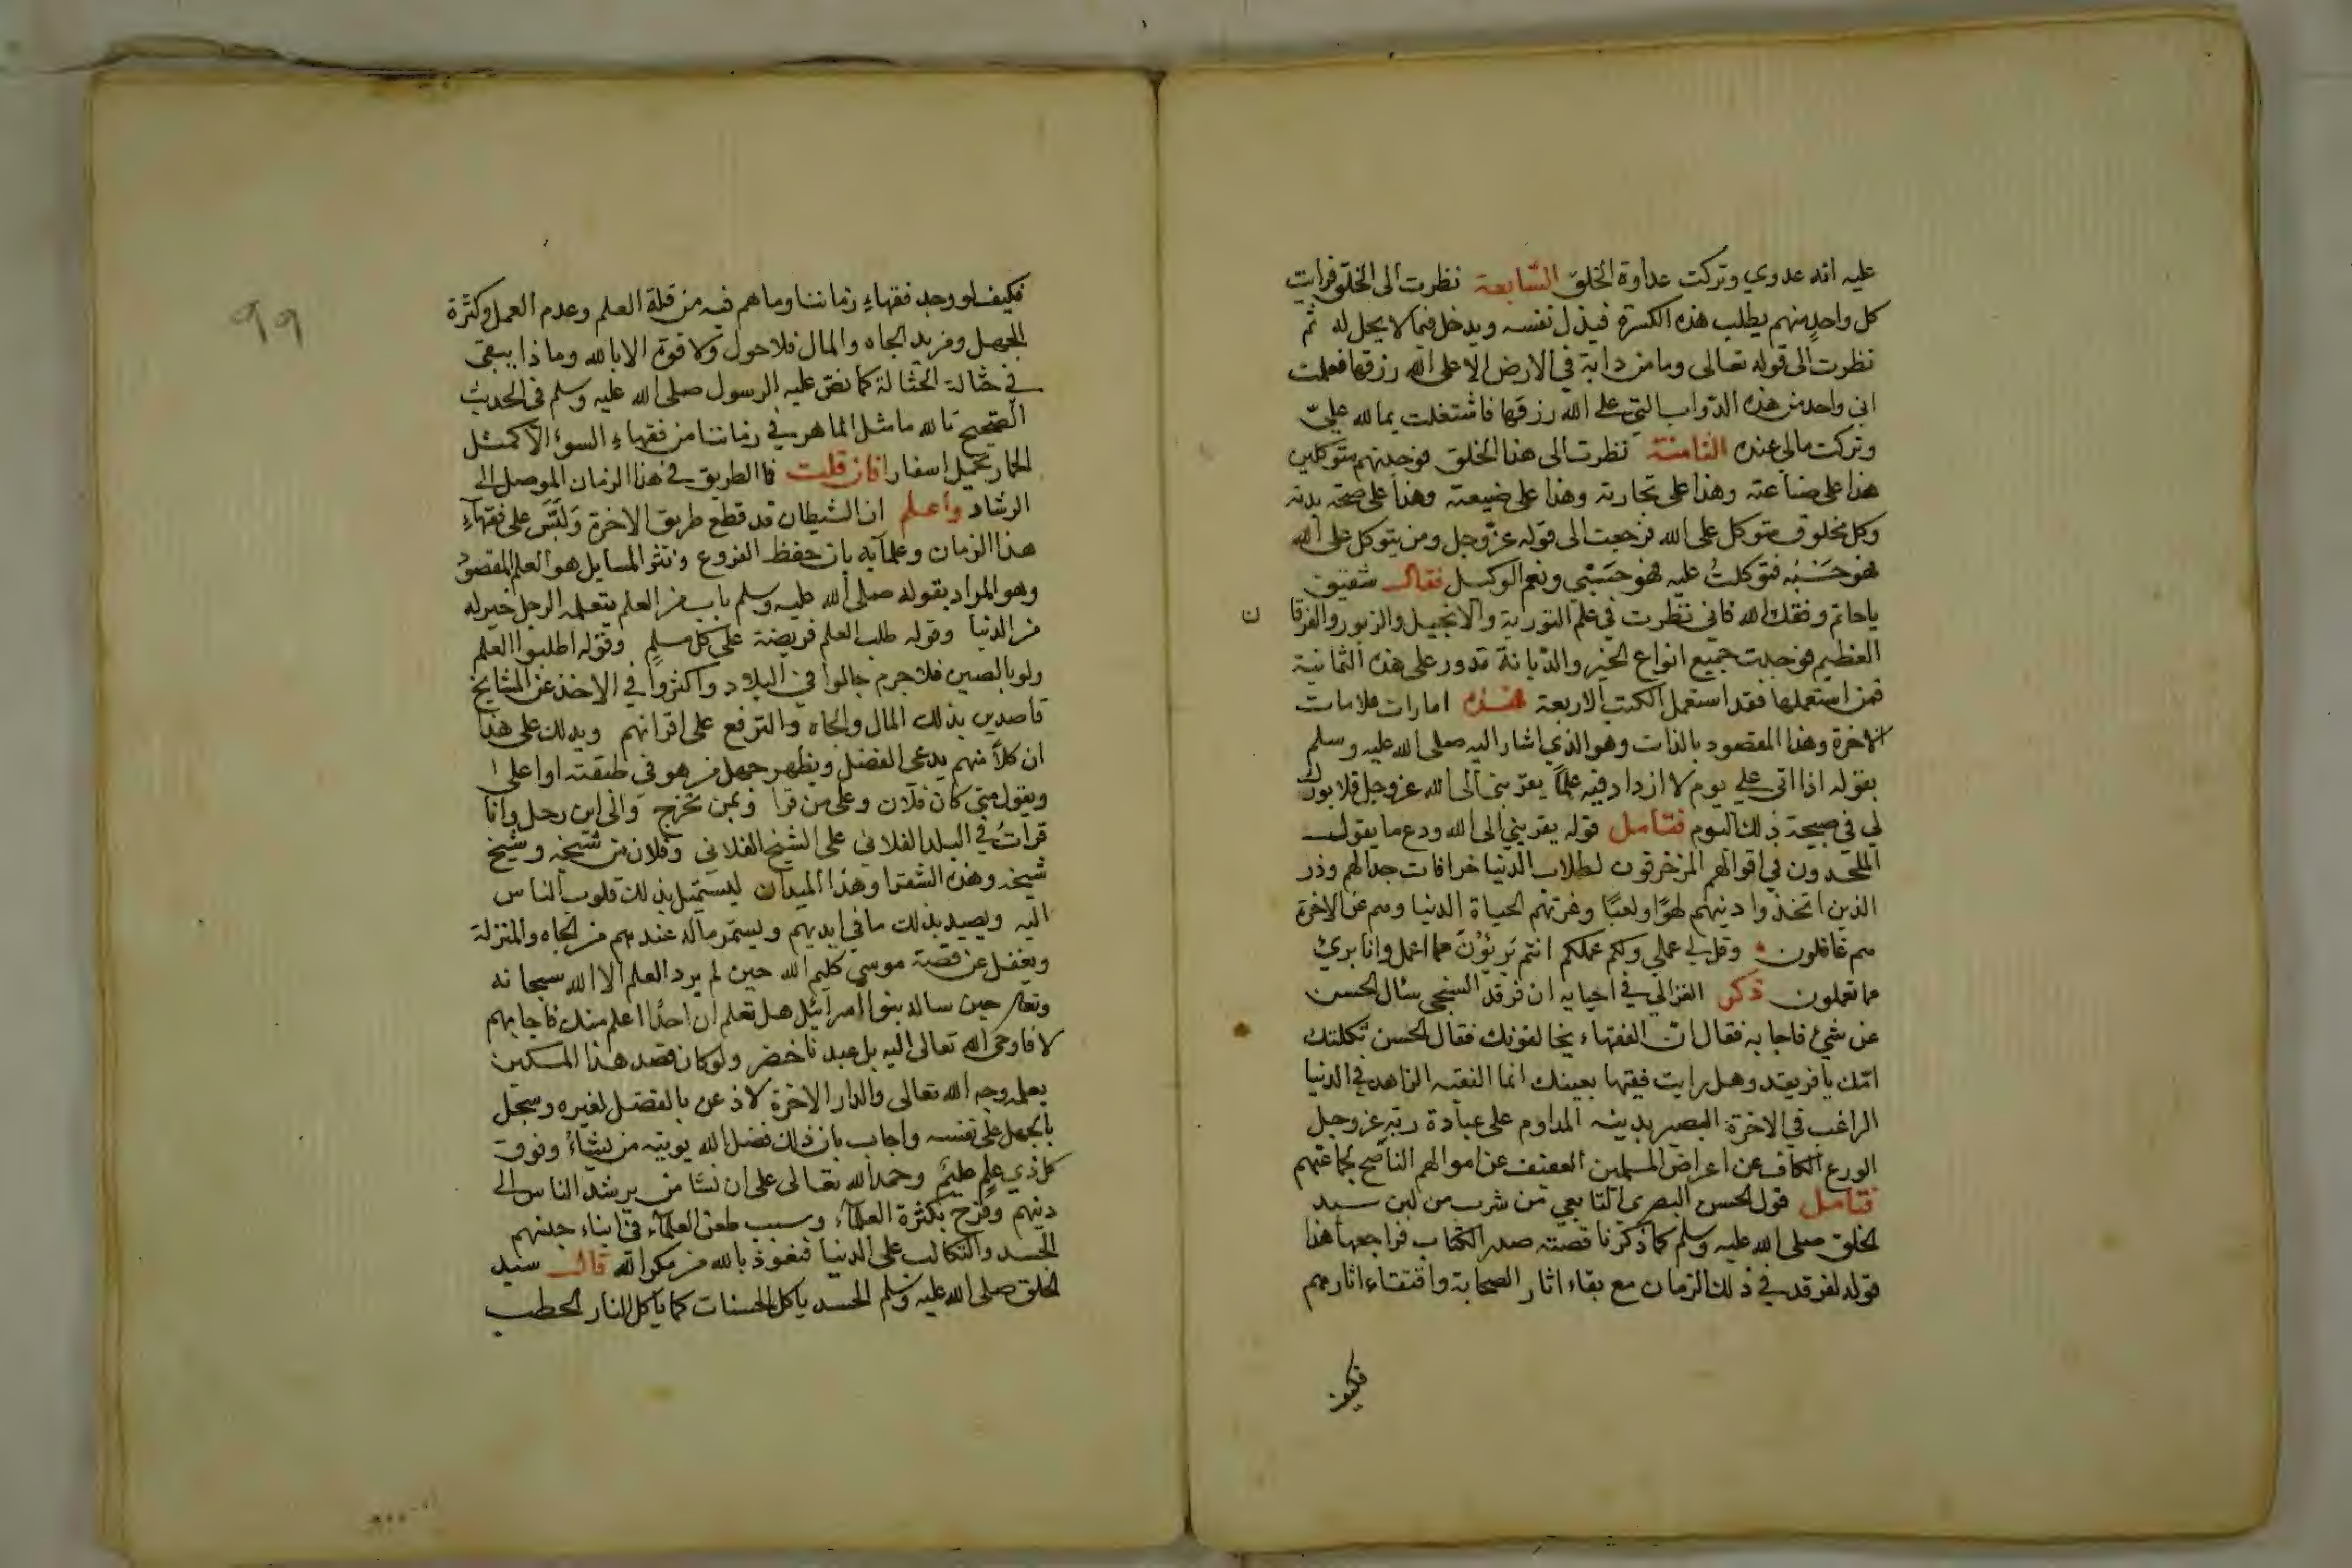 عليه انه عدوي وتركت عداوة الخلق السابعة نظرت الى الخلق فرايت
كل واحد منهم يطلب هذه الكسرة فيذل نفسه ويدخل فيما لا يحل له ثم
نظرت الى قوله تعالى وما من دابة في الارض الا على الله رزقها فعلمت
اني واحد من هذه الدواب التي على الله رزقها فاشتغلت بما لله عليّ
وتركت مالي عنده الثامنة نظرت الى هذا الخلق فوجدتهم متوكلين
هذا على ضياعته وهذا على تجارته وهذا على ضيعته وهذا على صحة بدنه
وكل مخلوق متوكل على الله فرجعت الى قوله عز وجل ومن يتوكل على الله
فهو حَسْبُه فتوكلتُ عليه فهو حَسْبي ونعم الوكيل فقال شقيق
ياحاتم وفقك الله فاني نظرت في علم التورية والانجيل والزبور والفرقا ن
العظيم فوجدت جميع انواع الخير والديانة تدور على هذه الثمانية
فمن استعملها فقد استعمل الكتب الاربعة هذه امارات علامات
الاخرة وهذا المقصود بالذات وهو الذي اشار اليه صلى الله عليه وسلم
بقوله اذا اتى علي يوم لا ازداد فيه علمًا يقربني الى الله عز وجل فلا بورك
لي في صبيحة ذلك اليوم فتامل قوله يقربني الى الله ودع ما يقول
الملحدون في اقوالهم المزخرفون لطلاب الدنيا خرافات جدالهم وذر
الذين اتخذوا دينهم لهوًا ولعبًا وغرتهم الحياة الدنيا وهم عن الاخرة
هم غافلون وقل لي عملي ولكم عملكم انتم بريؤنَ مما اعمل وانا بريئ
مما تعملون ذكر الغزالي في احيايه ان فرقد السنجي سئال الحسن
عن شئ فاجابه فقال ان الفقهاء يخالفونك فقال الحسن ثكلتك
امّك يا فريقد وهل رايت فقيها بعينك انما الفقيه الزاهد في الدنيا
الراغب في الاخرة البصير بدينه المداوم على عبادة ربه عز وجل
الورع الكاف عن اعراض المسلمين العفيف عن اموالهم الناصح لجماعتهم
فتامل قول الحسن البصري التابعي من شرب من لبن سيد
الخلق صلى الله عليه وسلم كما ذكرنا قصته صدر الكتاب فراجعها هذا
قوله لفرقد في ذلك الزمان مع بقاء اثار الصحابة واقتفاء اثارهم
فكيف
99
فكيف لو وجد فقهاء زماننا وما هم فيه من قلة العلم وعدم العمل وكثرة
الجهل ومزيد الجاه والمال فلا حول ولا قوة الا بالله وماذا يبقى
في حثالة الحثالة كما نصّ عليه الرسول صلى الله عليه وسلم في الحديث
الصحيح تالله ما مثل الماهر في زماننا من فقهاء السوء الا كمثل
الحمار يحمل اسفارا فان قلت فما الطريق في هذا الزمان الموصل الى
الرشاد واعلم ان الشيطان قد قطع طريق الاخرة ولبّسَ على فقهآء
هذا الزمان وعلمآيه بان حفظ الفروع ونثر المسايل هو العلم المقصودُ
وهو المراد بقوله صلى الله عليه وسلم باب من العلم يتعلمه الرجل خير له
من الدنيا وقوله طلب العلم فريضة على كل مسلم وقوله اطلبوا العلم
ولو بالصين فلا جرم جالوا في البلاد واكثروا في الاخذ عن المشايخ
قاصدين بذلك المال والجاه والترفع على اقرانهم ويدلك على هذا
ان كلاً منهم يدعى الفضل ويظهر جهل من هو في طبقته او اعلى
ويقول متى كان فلان وعلى من قرا وبمن تخرج واني ابن رحل وانا
قراتُ في البلد الفلاني على الشيخ الفلاني وفلان من شيخه وشيخ
شيخه وهذه الشقرا وهذا الميدان ليستميل بذلك قلوب الناس
اليه ويصيد بذلك ما في ايديهم ويستمر ماله عندهم من الجاه والمنزلة
ويغفل عن قصة موسى كليم الله حين لم يرد العلم الا الله سبحانه
وتعا حين ساله بنوا اسرآئيل هل تعلم ان احدًا اعلم منك فاجابهم
لا فاوحى الله تعالى اليه بل عبدنا خضر ولو كان قصد هذا المسكين
بعلمه وجه الله تعالى والدار الاخرة لاذعن بالفضل لغيره وسجل
بالجهل على نفسه واجاب بان ذلك فضل الله يوتيه من يشاءُ وفوق
كل ذي علم عليم وحمد الله تعالى على ان نشا من يرشد الناس الى
دينهم وفرح بكثرة العلمآء وسبب طعن العلمآء في ابناء جنسهم
الحسد والتكالب على الدنيا فنعوذ بالله من مكر الله قال سيد
الخلق صلى الله عليه وسلم الحسد ياكل الحسنات كما ياكل النار الحطب